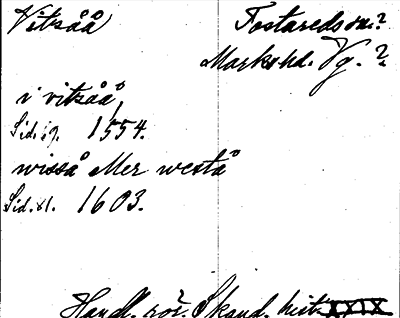 Vitsåå Tostareds sn?
Marks hd. Vg. ?
i vitsåå,
Sid. 19. 1554.
wisså eller westå
Sid. 81. 1603.
Handl. rör. Skand. hist. XXIX